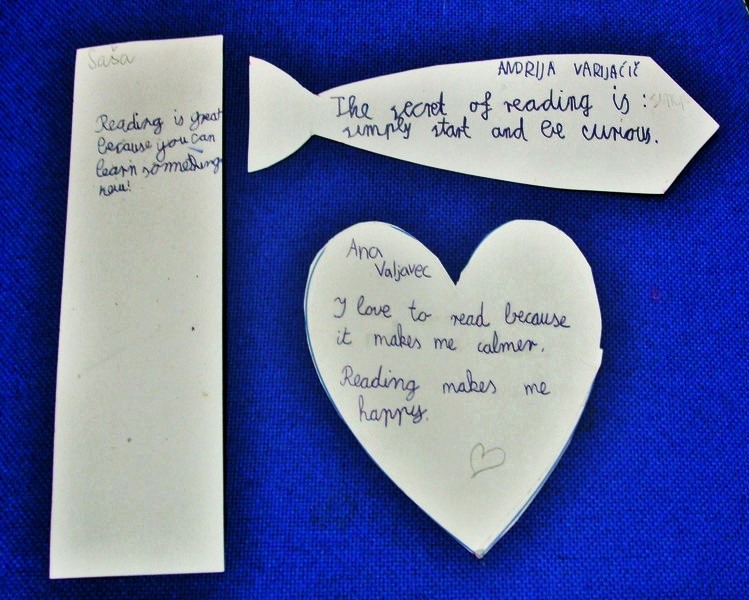 Saša
Reading is great
because you can
learn something
new!
ANDRIJA VARIJAČIČ
The secret of reading is :
simply start and be curious.
Ana
Valjavec
I love to read because
it makes me calmer.
Reading makes me
happy.